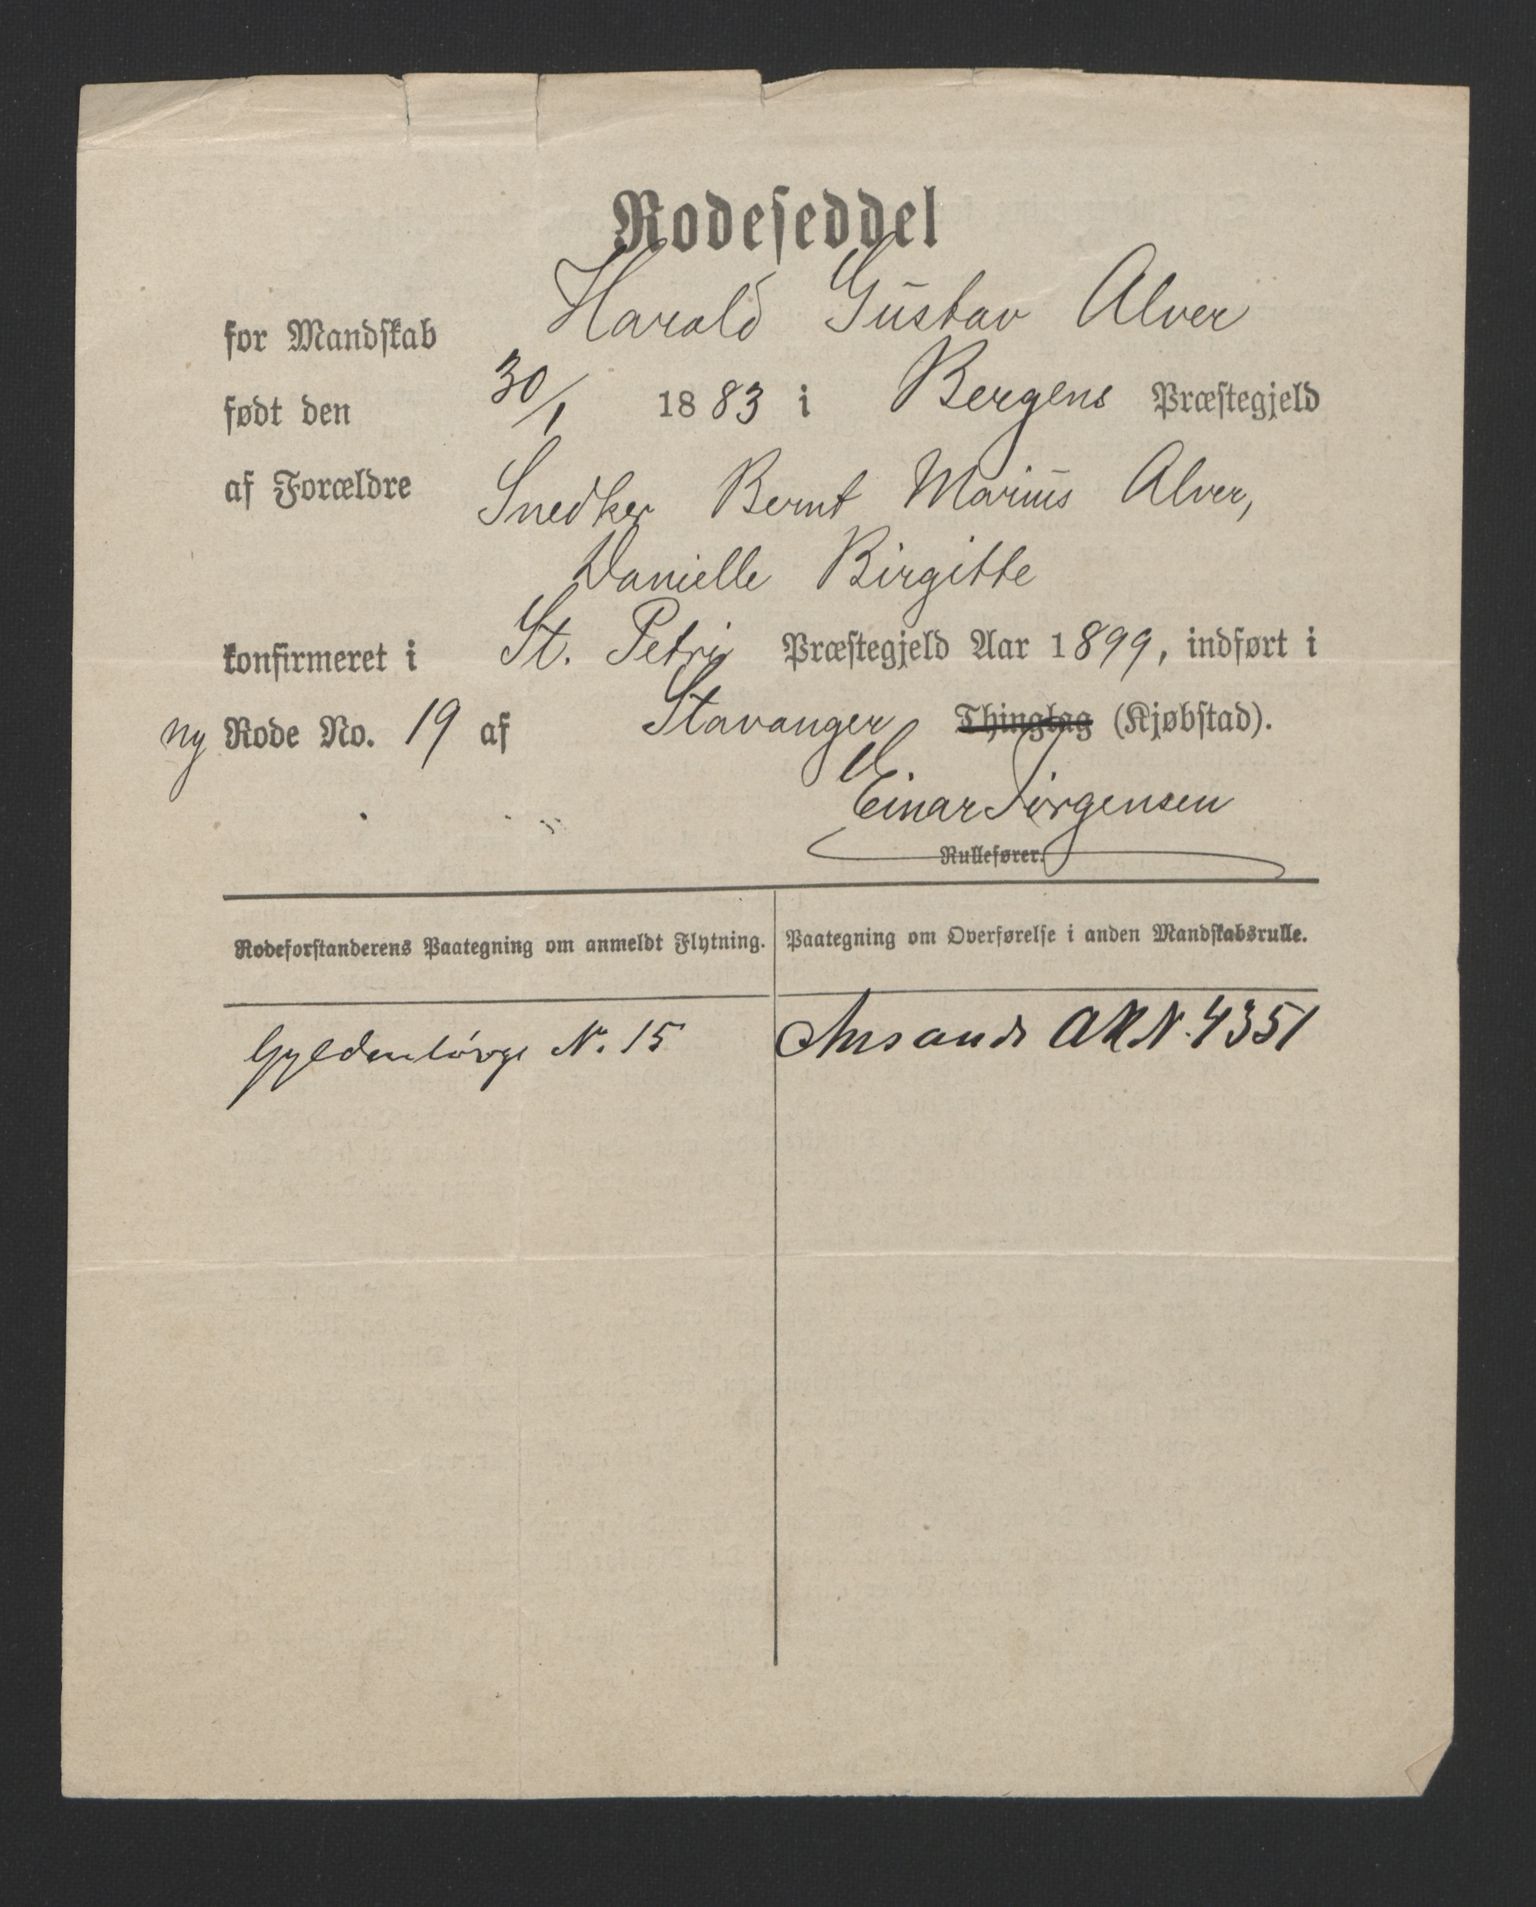 Rodeseddel
for Mandskab Harald Gustav Alver
født den 30/1 1883 i Bergens Præstegjeld
af Forældre Snedker Bernt Marius Alver,
Danielle Birgitte
konfirmeret i St. Petri Præstegjeld Aar 1899, indført i
ny Rode No. 19 af Stavanger Thinglag (Kjøbstad).
Einar Jörgensen
Rullefører.
Rodeforstanderens Paategning om anmeldt Flytning.
Paategning om Overførelse i anden Mandskabsrulle.
N. 15
AR N. 4351